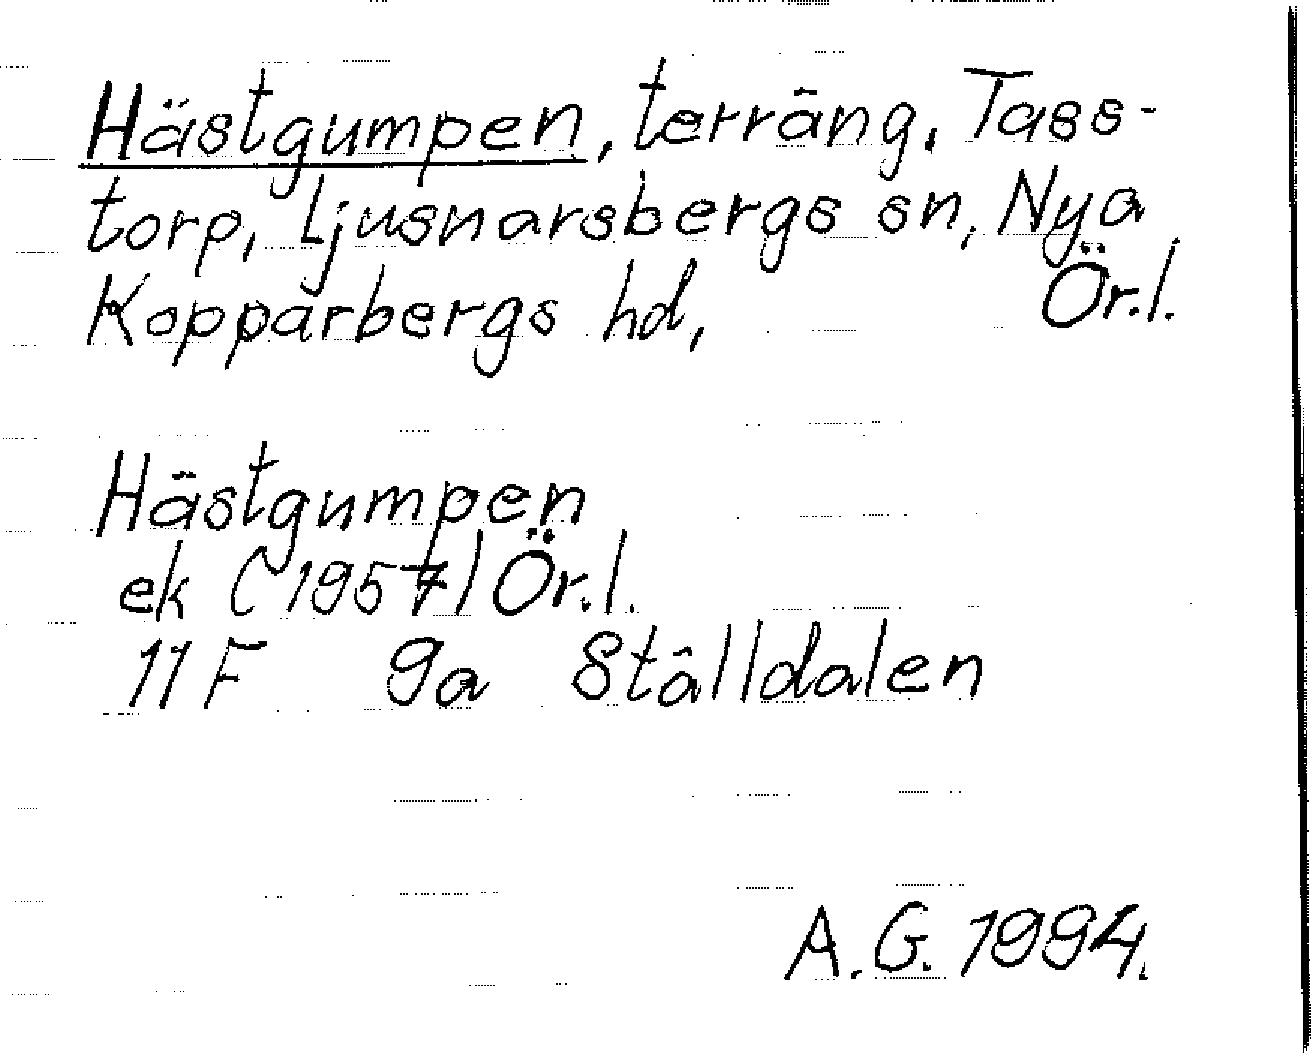 Hästgumpen, terräng, Tass-
torp, Ljusnarsbergs sn, Nya
Kopparbergs hd, Ör.l.
Hästgumpen
ek (1957) Ör.l.
11F 9a Ställdalen
A.G. 1994.